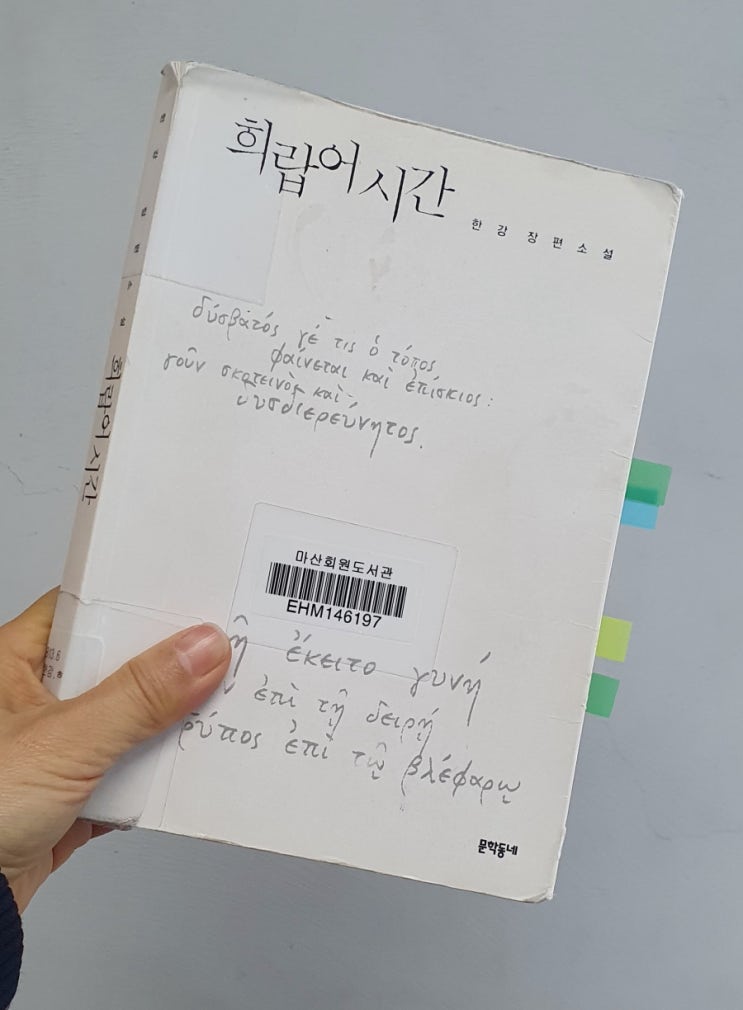 희랍어 시간
한 강 장 편 소 설
δύσβατός γέ τις ὁ τόπος
φαίνεται καὶ ἐπίσκιος:
γοῦν σκοτεινὸς καὶ
δυσδιερεύνητος.
마산회원도서관
EHM146197
ἔκειτο γυνή
ἐπὶ τῇ δειρῇ
ῥύπος ἐπὶ τῷ βλέφαρῳ
문학동네
희랍어 시간